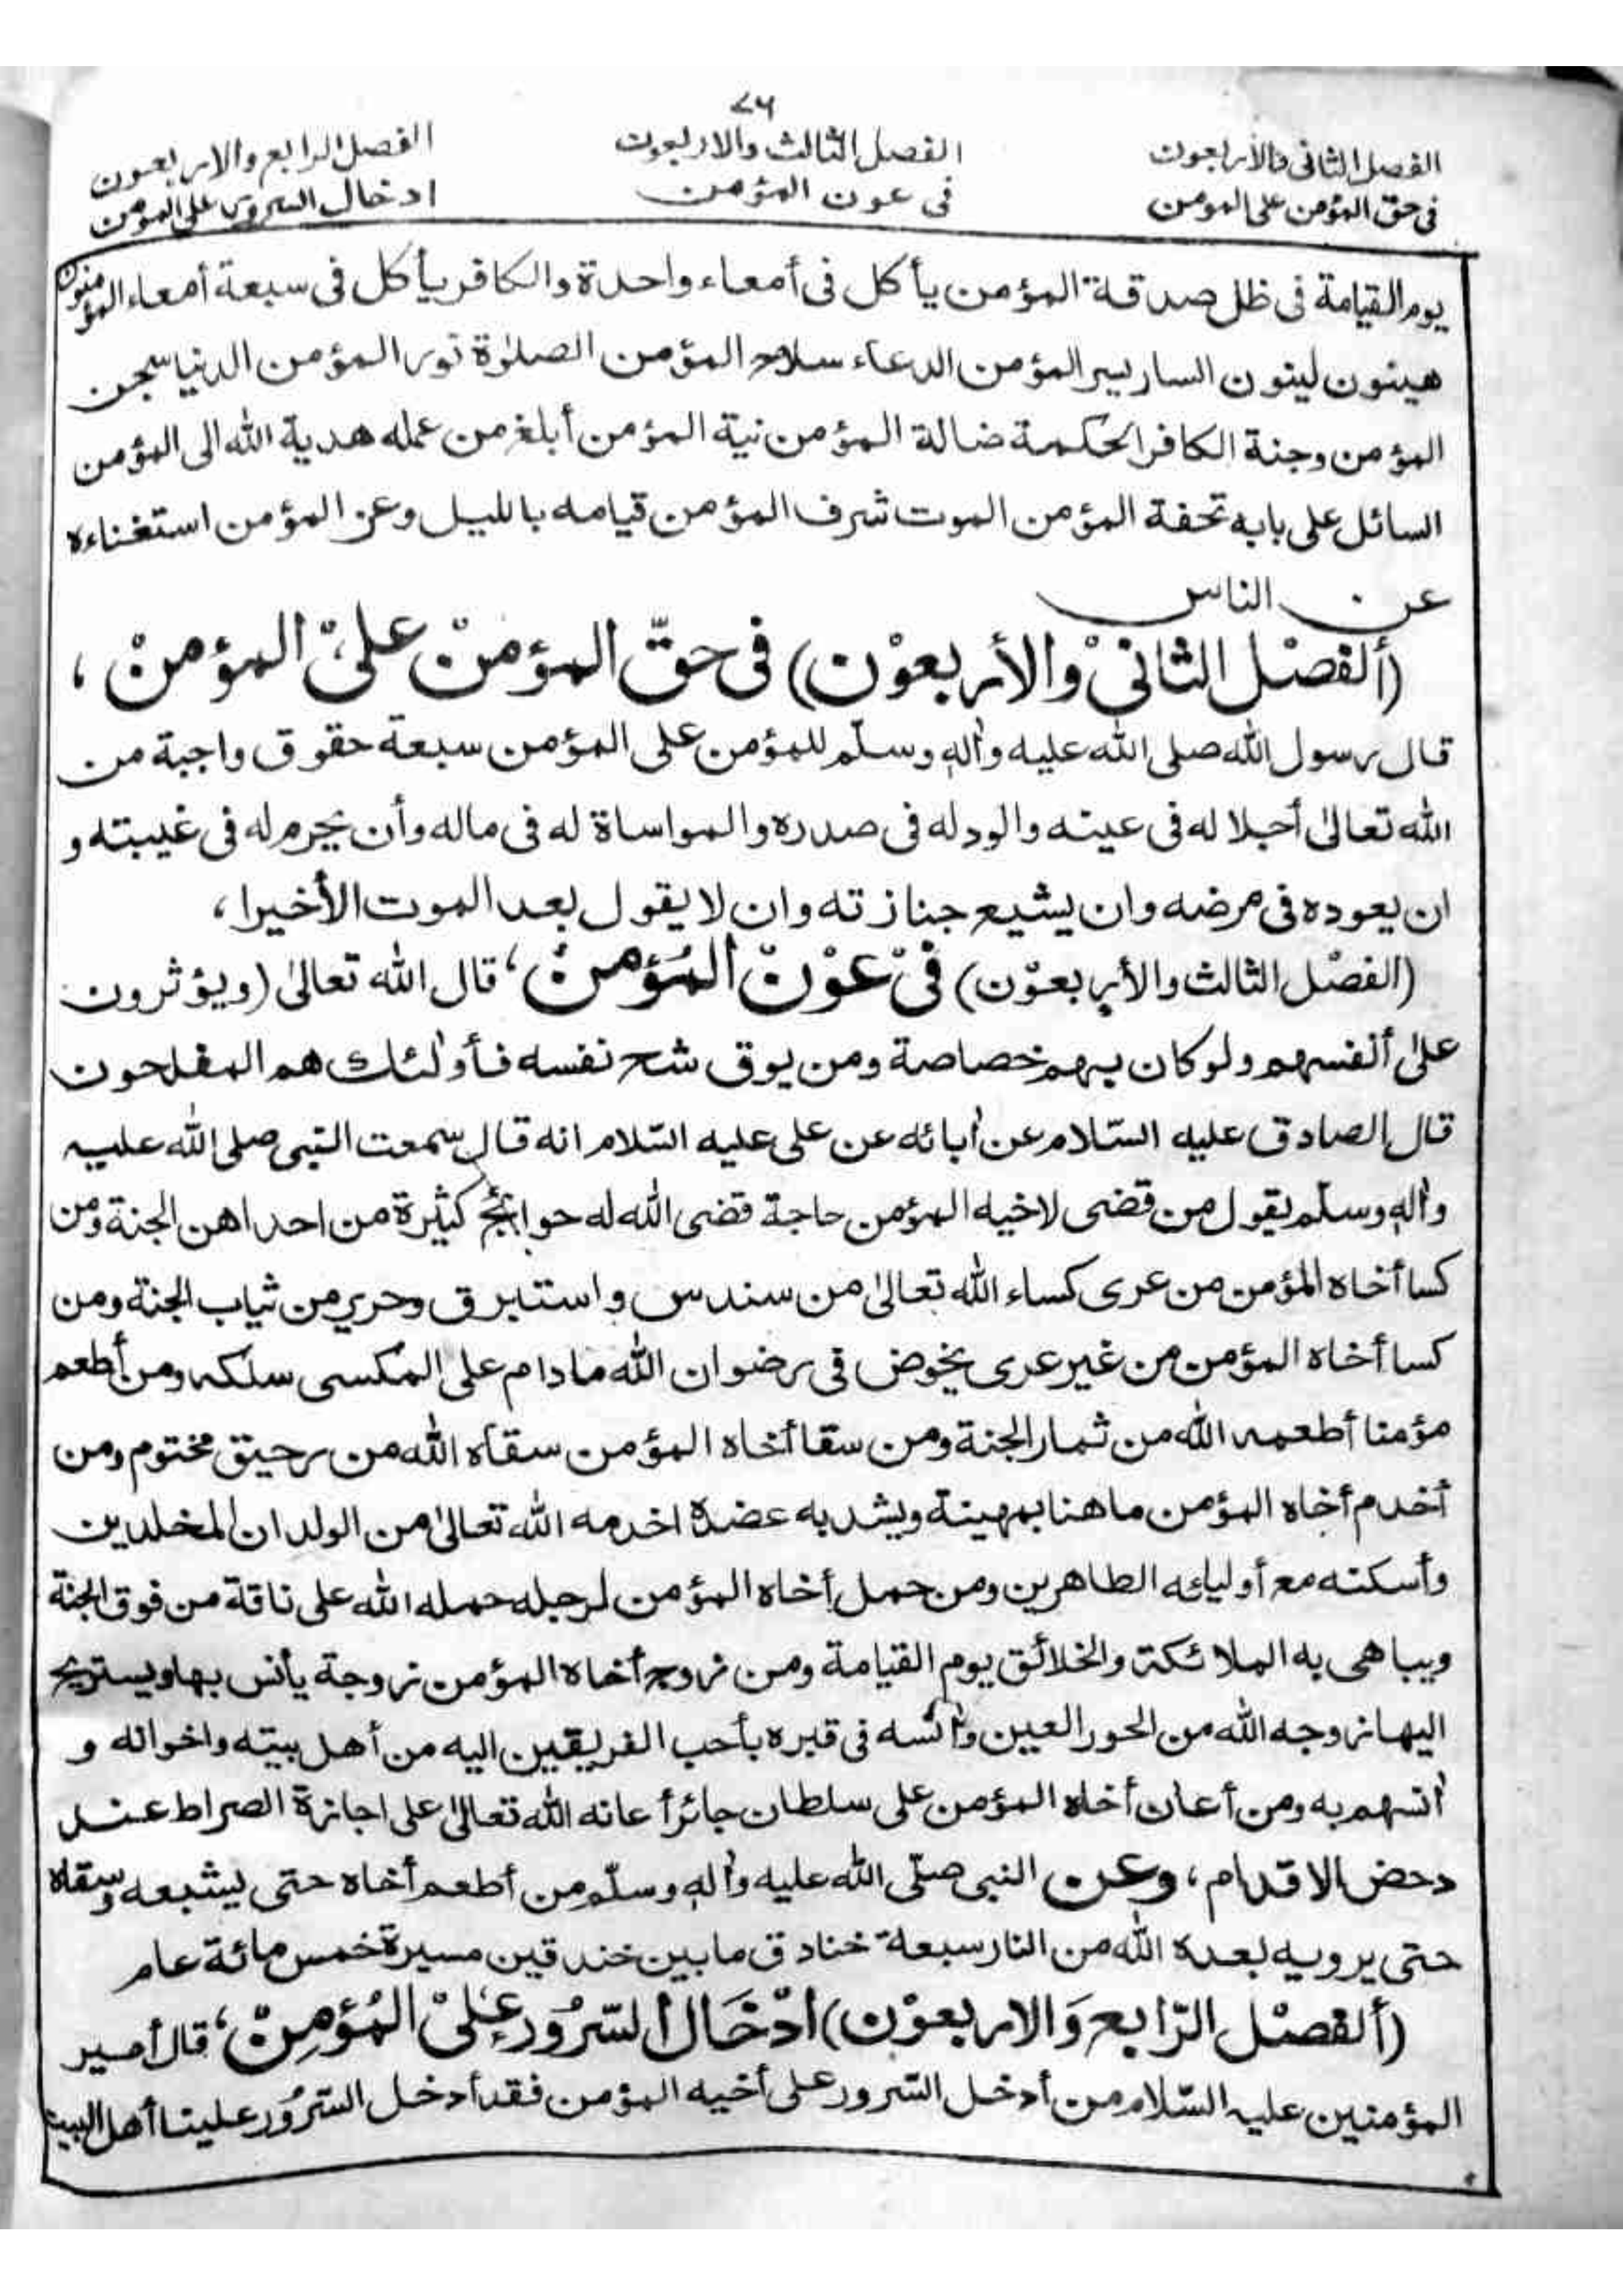 ٧٦
الفصل الثانى والأربعون
فى حق المؤمن على المومن
الفصل الثالث والاربعون
فى عون المؤمن
الفصل الرابع والاربعون
ادخال السرور على المومن
يوم القيامة فى ظل صدقة المؤمن يأكل فى أمعاء واحدة والكافر يأكل فى سبعة أمعاء المؤمنون
هينون لينون السار يسر المؤمن الدعاء سلاح المؤمن الصلوٰة نور المؤمن الدنيا سجن
المؤمن وجنة الكافر الحكمة ضالة المؤمن نية المؤمن أبلغ من عمله هدية الله الى المؤمن
السائل على بابه تحفة المؤمن الموت شرف المؤمن قيامه بالليل وعز المؤمن استغناءه
عن الناس
(ألفصْل الثانىْ والأربعوْن) فى حقّ المؤمنْ علىْ المؤمنْ ،
قال رسول الله صلى الله عليه وأله وسلّم للمؤمن على المؤمن سبعة حقوق واجبة من
الله تعالىٰ أجلا له فى عينه والود له فى صدره والمواساة له فى ماله وأن يحرم له فى غيبته و
ان يعوده فى مرضه وان يشيع جنازته وان لا يقول بعد الموت الأخيرا ،
(الفصْل الثالث والأربعوْن) فىْ عوْنْ المُؤمنْ ، قال الله تعالىٰ (ويؤثرون
علىٰ أنفسهم ولو كان بهم خصاصة ومن يوق شح نفسه فأولٰئك هم المفلحون
قال الصادق عليه السّلام عن أبائه عن على عليه السّلام انه قال سمعت النبى صلى الله عليه
وأله وسلّم يقول من قضى لاخيه المؤمن حاجة قضى الله له حوائج كثيرة من احداهن الجنة ومن
كسا أخاه المؤمن من عرى كساء الله تعالىٰ من سندس واستبرق وحرير من ثياب الجنة ومن
كسا أخاه المؤمن من غير عرى يخوض فى رضوان الله مادام على المكسى سلكه ومن أطعم
مؤمنا أطعمه الله من ثمار الجنة ومن سقا أخاه المؤمن سقاه الله من رحيق مختوم ومن
أخدم أخاه المؤمن ماهنا بمهينة ويشد به عضده اخدمه الله تعالىٰ من الولدان المخلدين
وأسكنه مع أوليائه الطاهرين ومن حمل أخاه المؤمن لرجله حمله الله على ناقة من فوق الجنة
ويباهى به الملائكة والخلائق يوم القيامة ومن زوج أخاه المؤمن زوجة يأنس بها ويستريح
اليها زوجه الله من الحور العين وأنسه فى قبره بأحب الفريقين اليه من أهل بيته واخوانه و
أنسهم به ومن أعان أخاه المؤمن على سلطان جائر أعانه الله تعالىٰ على اجازة الصراط عند
دحض الاقدام ، وعن النبى صلّى الله عليه وأله وسلّم من أطعم أخاه حتى يشبعه وسقاه
حتى يرويه بعده الله من النار سبعة خنادق مابين خندقين مسيرة خمس مائة عام
(ألفصْل الرّابع وَالاربعوْن) ادْخَال السّرُور علىْ المُؤمِنْ ، قال أمير
المؤمنين عليه السّلام من أدخل السّرور على أخيه المؤمن فقد أدخل السّرُور علينا أهل البيت